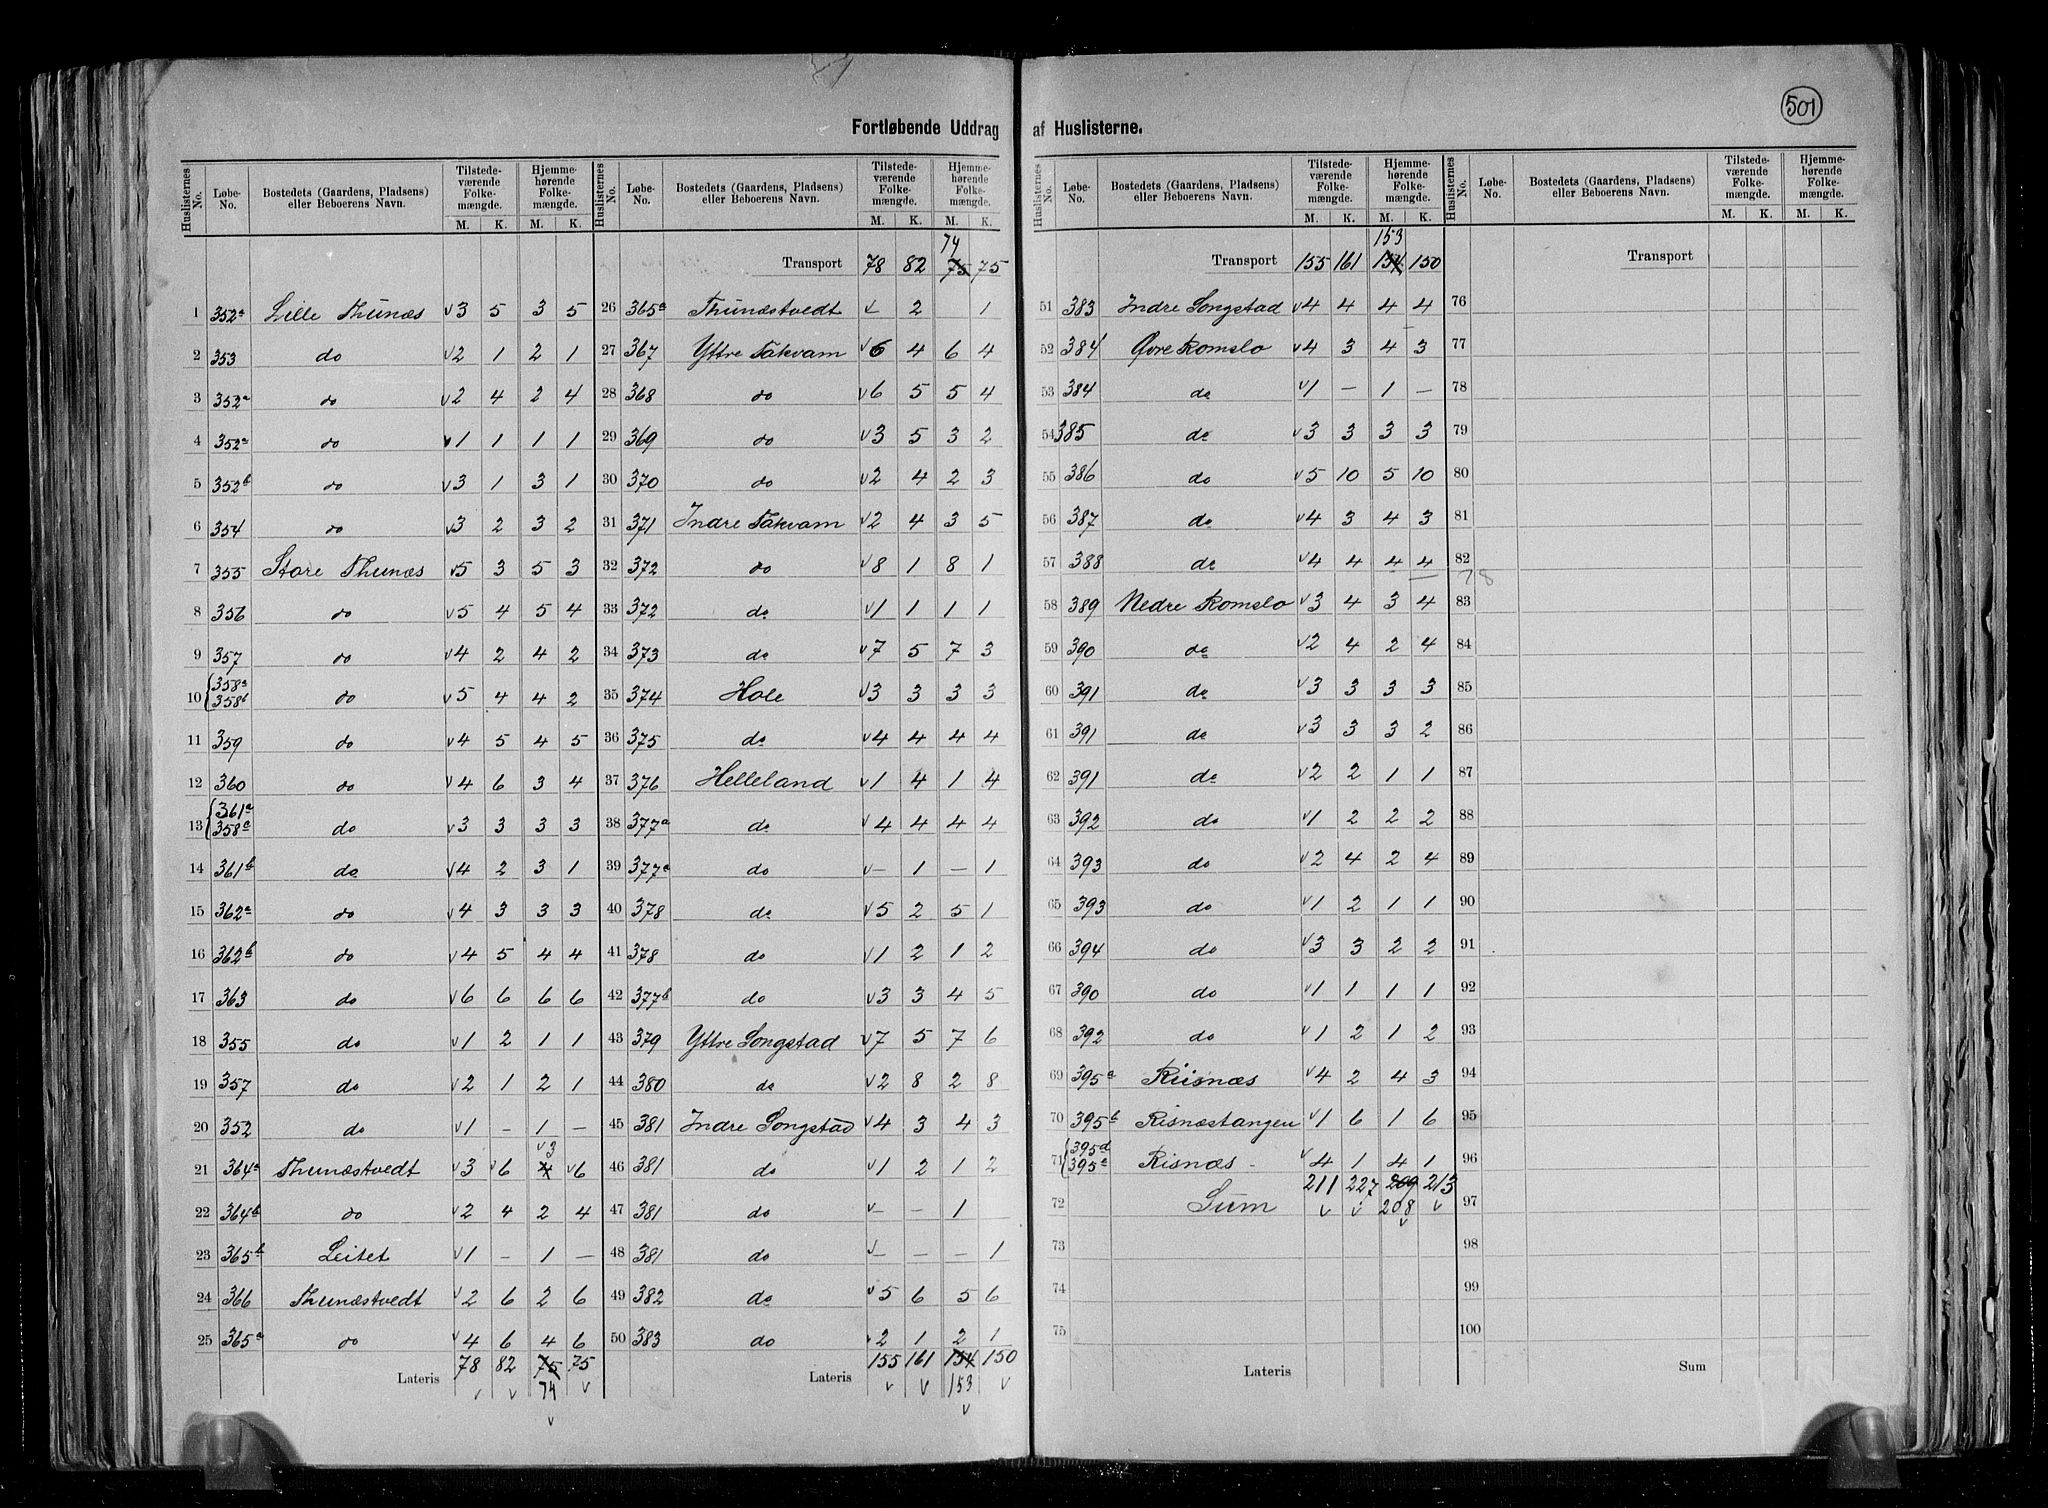 501
Fortløbende Uddrag af Huslisterne.
Huslisternes No. | Løbe-No. | Bostedets (Gaardens, Pladsens) eller Beboerens Navn. | Tilstedeværende Folkemængde. M. K. | Hjemmehørende Folkemængde. M. K.
1 352a Lille Thunæs v3 5 3 5
2 353 do v2 1 2 1
3 352a do v2 4 2 4
4 352a do v1 1 1 1
5 352b do v3 1 3 1
6 354 do v3 2 3 2
7 355 Store Thunæs v5 3 5 3
8 356 do v5 4 5 4
9 357 do v4 2 4 2
10 {358a 358b do v5 4 4 2
11 359 do v4 5 4 5
12 360 do v4 6 3 4
13 {361a 358c do v3 3 3 3
14 361b do v4 2 3 1
15 362a do v4 3 3 3
16 362b do v4 5 4 4
17 363 do v6 6 6 6
18 355 do v1 2 1 1
19 357 do v2 1 2 1
20 352 do v1 - 1 -
21 364a Thunæstvedt v3 v6 4 v3 v6
22 364b do v2 4 2 4
23 365b Leitet v1 - 1 -
24 366 Thunæstvedt v2 6 2 6
25 365a do v4 6 4 6
Lateris 78 82 75 75
v v 74 v
v
Huslisternes No. | Løbe-No. | Bostedets (Gaardens, Pladsens) eller Beboerens Navn. | Tilstedeværende Folkemængde. M. K. | Hjemmehørende Folkemængde. M. K.
74
Transport 78 82 75 75
26 365a Thunæstvedt v 2 1
27 367 Yttre Takvam v6 4 6 4
28 368 do v6 5 5 4
29 369 do v3 5 3 2
30 370 do v2 4 2 3
31 371 Indre Takvam v2 4 3 5
32 372 do v8 1 8 1
33 372 do v1 1 1 1
34 373 do v7 5 7 3
35 374 Hole v3 3 3 3
36 375 do v4 4 4 4
37 376 Helleland v1 4 1 4
38 377a do v4 4 4 4
39 377a do v- 1 - 1
40 378 do v5 2 5 1
41 378 do v1 2 1 2
42 377b do v3 3 4 5
43 379 Yttre Songstad v7 5 7 6
44 380 do v2 8 2 8
45 381 Indre Songstad v4 3 4 3
46 381 do v1 2 1 2
47 381 do v- - 1
48 381 do v- - - 1
49 382 do v5 6 5 6
50 383 do v2 1 2 1
Lateris 155 161 154 150
v v 153 v
v
Huslisternes No. | Løbe-No. | Bostedets (Gaardens, Pladsens) eller Beboerens Navn. | Tilstedeværende Folkemængde. M. K. | Hjemmehørende Folkemængde. M. K.
153
Transport 155 161 154 150
51 383 Indre Songstad v4 4 4 4
52 384 Øvre Romslo v4 3 4 3
53 384 do v1 - 1 -
54 385 do v3 3 3 3
55 386 do v5 10 5 10
56 387 do v4 3 4 3
57 388 do v4 4 4 4
58 389 Nedre Romslo v3 4 3 4
59 390 do v2 4 2 4
60 391 do v3 3 3 3
61 391 do v3 3 3 2
62 391 do v2 2 1 1
63 392 do v1 2 2 2
64 393 do v2 4 2 4
65 393 do v1 2 1 1
66 394 do v3 3 2 2
67 390 do v1 1 1 1
68 392 do v1 2 1 2
69 395a Riisnæs v4 2 4 3
70 395b Risnæstangen v1 6 1 6
71 {395d 395c Risnæs v4 1 4 1
72 Sum 211 227 209 213
v v 208 v
v
73
74
75
Lateris
Huslisternes No. | Løbe-No. | Bostedets (Gaardens, Pladsens) eller Beboerens Navn. | Tilstedeværende Folkemængde. M. K. | Hjemmehørende Folkemængde. M. K.
Transport
76
77
78
79
80
81
82
78
83
84
85
86
87
88
89
90
91
92
93
94
95
96
97
98
99
100
Sum